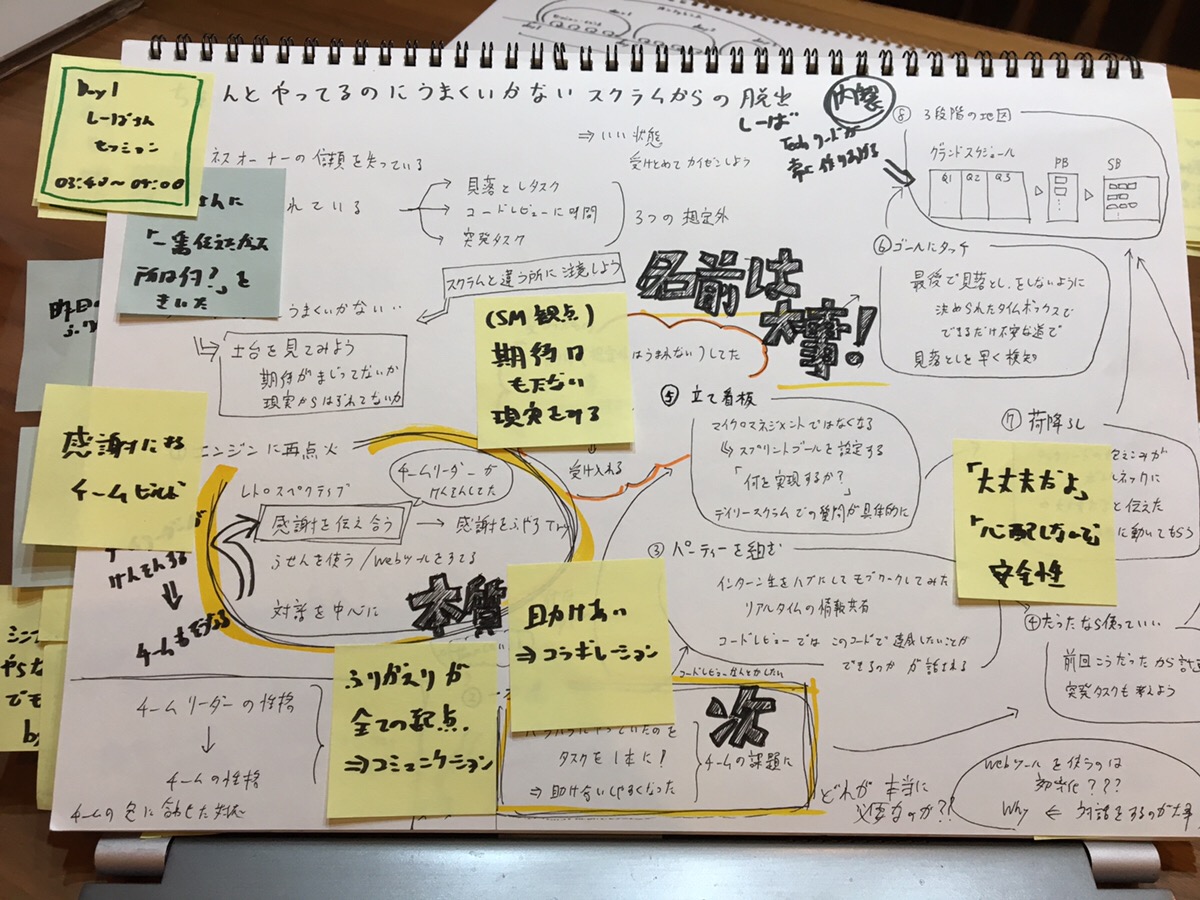 Day 1
しーばさん
セッション
03:40〜04:00
んとやってるのにうまくいかない スクラムからの 脱出
しーば
内製
Techリードが
⇒ いい状態
受けとめてカイゼンしよう
ネスオーナーの信頼を失っている
れている
見落としタスク
コードレビューに時間
突発タスク
3つの想定外
さんに
「一番伝えたかった
所は何?」と
きいた
昨日の
スクラムと違う所に注意しよう
うまくいかない‥
土台を見てみよう
期待がまじってないか
現実からはずれてないか
名前は
大事!
(SM観点)
期待は
もたない
現実をみる
はうまれない)した
受け入れる
⑧ 3段階の地図
グランドスケジュール
PB
SB
Q1
Q2
Q3
⑥ ゴールにタッチ
最後で見落とし、をしないように
決められたタイムボックスで
できるだけ不安な道で
見落としを早く検知
⑤ 立て看板
マイクロマネジメントではなくなる
↳ スプリントゴールを設定する
「何を実現するか?」
デイリースクラムでの質問が具体的に
⑦ 荷降ろし
ネックに
と伝えた
に動いてもらう
「大丈夫だよ」
「心配しないで」
安全性
感謝による
チームビルド
エンジンに再点火
チームリーダーが
けんそんしてた
レトロスペクティブ
感謝を伝え合う → 感謝をふやそう
ふせんを使う/Webツールをすてる
対話を中心に
本質
けんそんする
⇓
チームもそうなる
③ パーティーを組む
インターン生をハブにしてモブワークしてみた
リアルタイムの情報共有
コードレビューでは このコードで達成したいことが
できるのか が話される
助けあい
⇒コラボレーション
④ だったなら使っていい‥
前回こうだったから計画
突発タスクも考えよう
シンプ
やらな
でも
by
チームリーダーの性格
↓
チームの性格
チームの色に合わせた対応
ふりかえりが
全ての起点.
⇒コミュニケーション
コードレビューなんとかしたい
パラレルにやっていたのを
タスクを1本に!
⇒ 助け合いしやすくなった
次
チームの課題に
どれが本当に
必要なのか??
Webツールを使うのは
効率化???
Why ← 対話をするのが大事